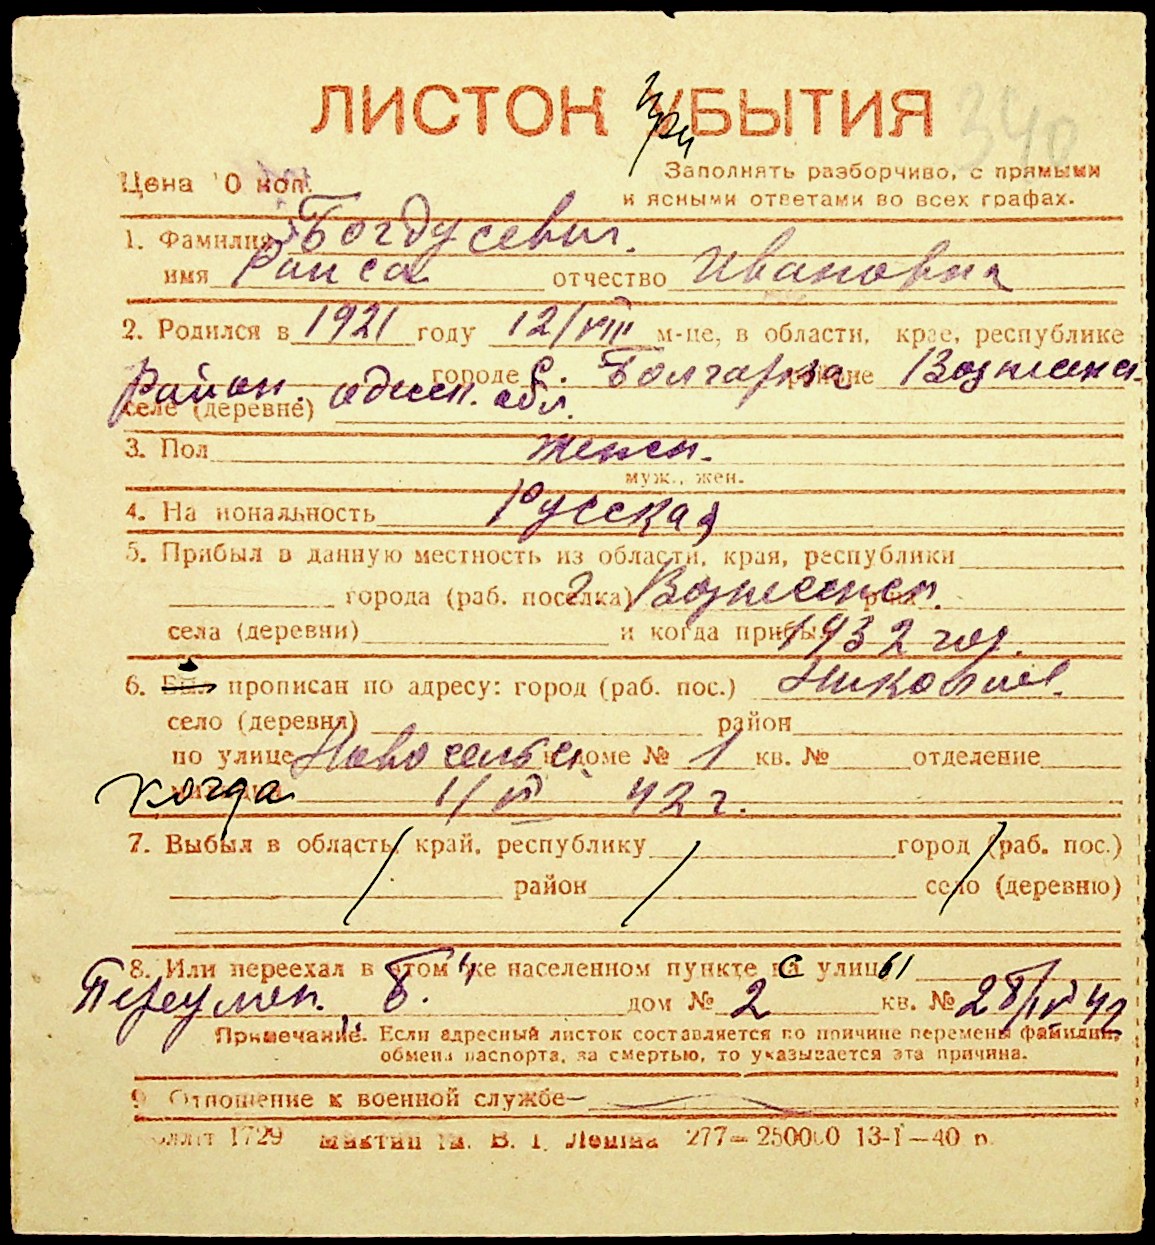 ЛИСТОК УБЫТИЯ
при
340
Цена 10 коп.
Заполнять разборчиво, с прямыми
и ясными ответами во всех графах.
1. Фамилия Богдусевич.
имя Раиса отчество Ивановна
2. Родился в 1921 году 12/VIII м-це, в области, крае, республике
городе с. Болгарка районе Вознесенск.
Район. одесск. обл.
селе (деревне)
3. Пол женск.
муж., жен.
4. Национальность Русская
5. Прибыл в данную местность из области, края, республики
города (раб. поселка) г. Вознесенск. р-на
села (деревни) и когда прибыл 1932 год.
6. Был прописан по адресу: город (раб. пос.) Николаев.
село (деревня) район
по улице Новосельск. в доме № 1 кв. № отделение
когда 1/VI 42 г.
7. Выбыл в область, край, республику город (раб. пос.)
район село (деревню)
8. Или переехал в этом же населенном пункте с улицы
дом № 2 кв. № 28/IV 42
Примечание. Если адресный листок составляется по причине перемены фамилии,
обмена паспорта, за смертью, то указывается эта причина.
9. Отношение к военной службе —
1729 им. В. І. Леніна 277—250000 13-I—40 р.